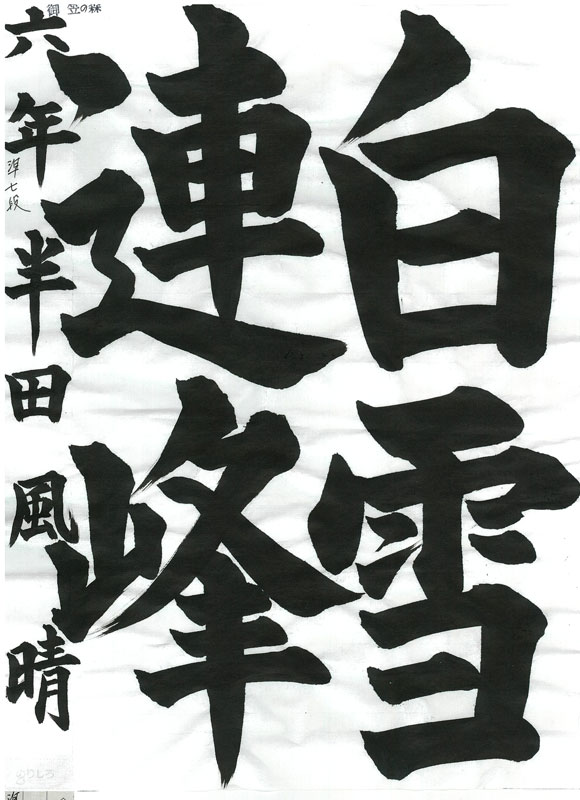 白雪
連峰
六年 半田風晴
準七段